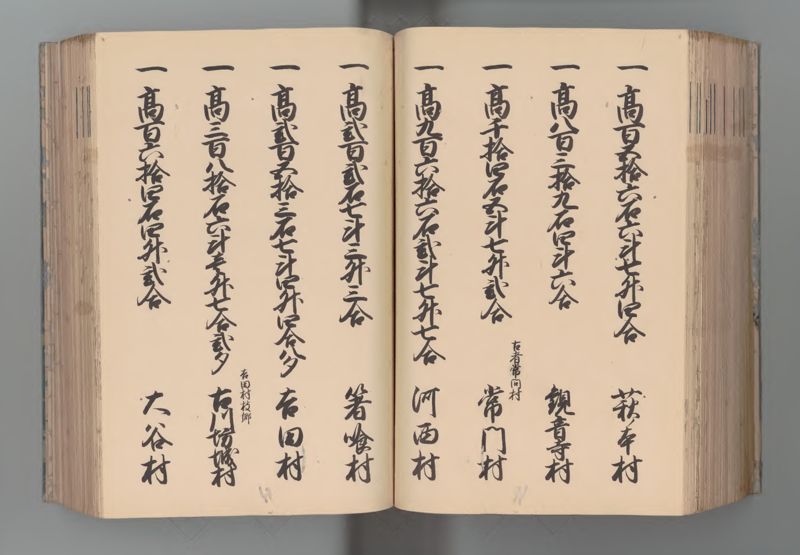 一 高百五拾六石六斗七升四合 萩ノ本村
一 高八百三拾九石四斗六合 観音寺村
一 高千拾四石五斗七升弐合 古者常門村 常門村
一 高九百六拾六石弐斗七升七合 河西村
一 高弐百弐石七斗三升三合 箸喰村
一 高弐百五拾三石七斗四升四合八夕 吉田村
一 高三百八拾石六斗壱升七合弐夕 吉田村枝郷 古川坊城村
一 高百六拾四石四升弐合 大谷村